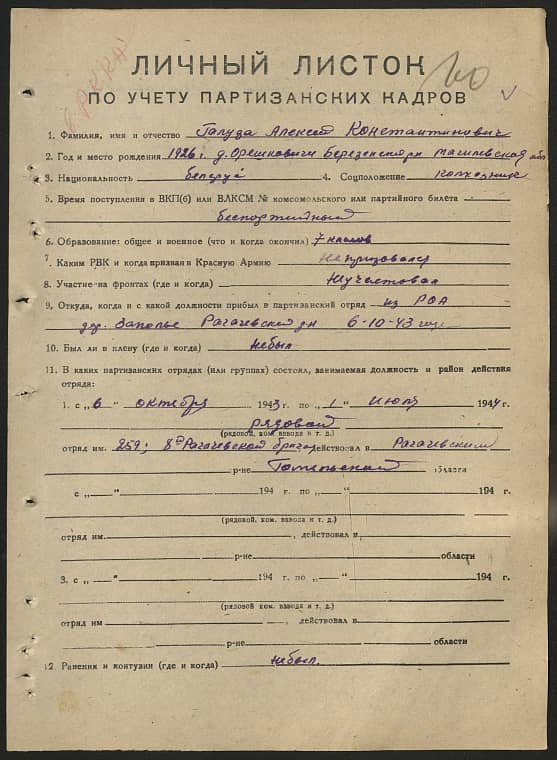 В РККА
40
ЛИЧНЫЙ ЛИСТОК
ПО УЧЕТУ ПАРТИЗАНСКИХ КАДРОВ
1. Фамилия, имя и отчество Галуза Алексей Константинович
2. Год и место рождения 1926 г. д. Орешковичи Березенск рн Магилевская обл
3. Национальность беларус 4. Соцположение колхозник
5. Время поступления в ВКП(б) или ВЛКСМ № комсомольского или партийного билета
беспортийный
6. Образование: общее и военное (что и когда окончил) 7 класов
7. Каким РВК и когда призван в Красную Армию не призовался
8. Участие на фронтах (где и когда) Неучаствовал
9. Откуда, когда и с какой должности прибыл в партизанский отряд из РОА
дер. Заполье Рагачевский рн 6-10-43 года
10. Был ли в плену (где и когда) небыл
11. В каких партизанских отрядах (или группах) состоял, занимаемая должность и район действия
отряда:
1. с „6“ октября 1943 г. по „1“ Июля 1944 г.
рядовой
(рядовой, ком. взвода и т. д.)
отряд им. 259; 8я Рагачевской бригады действовал в Рагачевским
р-не Гомельской области
с „ “ 194 г. по „ “ 194 г.
(рядовой, ком. взвода и т. д.)
отряд им. , действовал в
р-не области
3. с „ “ 194 г. по „ “ 194 г.
(рядовой, ком. взвода и т. д.)
отряд им , действовал в
р-не области
12. Ранения и контузии (где и когда) небыл.